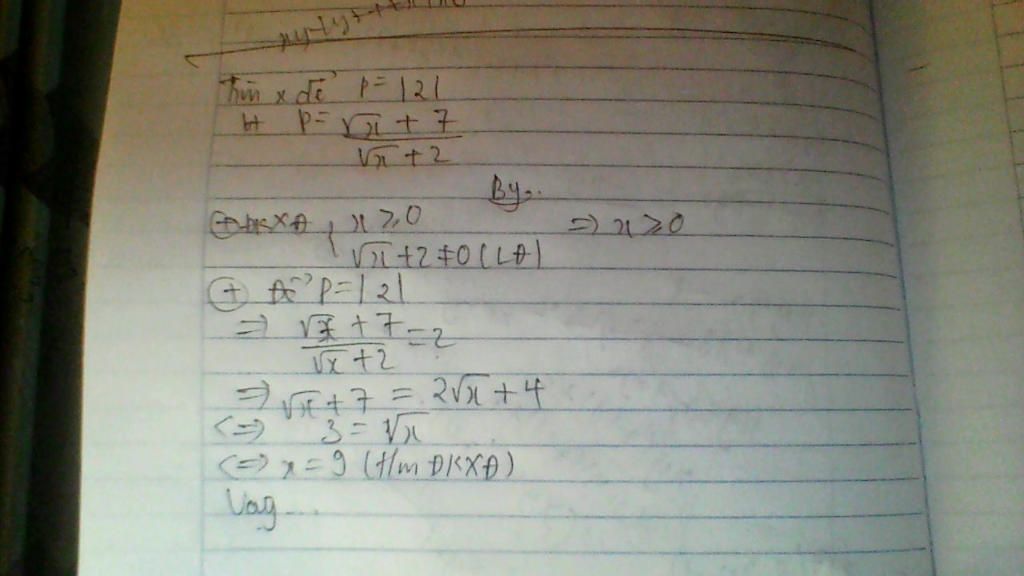 Tìm x để P = |2|
P = √x + 7 / √x + 2
⊕ ĐKXĐ { x ≥ 0 ⇒ x ≥ 0
√x + 2 ≠ 0 (LĐ)
⊕ Để P = |2|
⇒ √x + 7 / √x + 2 = 2
⇒ √x + 7 = 2√x + 4
⇔ 3 = √x
⇔ x = 9 (t/m ĐKXĐ)
Vậy...